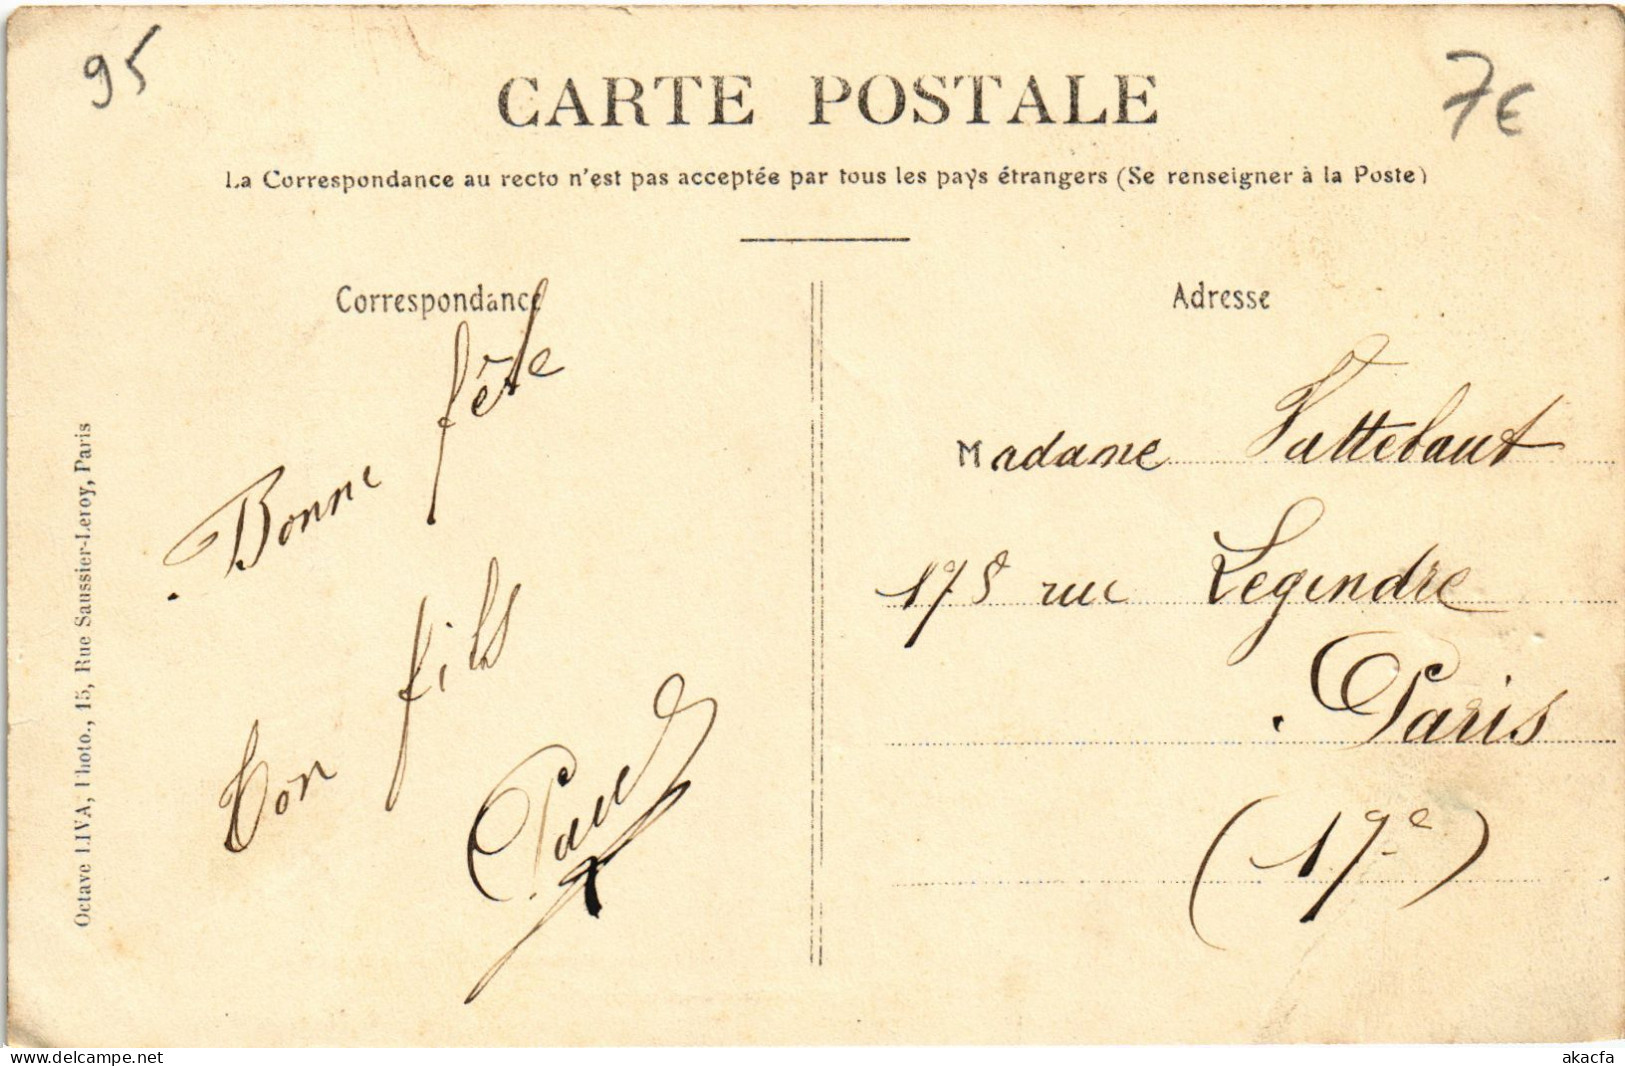 95
7€
CARTE POSTALE
La Correspondance au recto n'est pas acceptée par tous les pays étrangers (Se renseigner à la Poste)
Correspondance
Bonne fête
Ton fils
Paul
Octave LIVA, Photo., 15, Rue Saussier-Leroy, Paris
Adresse
Madame Vattebaut
175 rue Legendre
Paris
(17e)
www.delcampe.net
akacfa